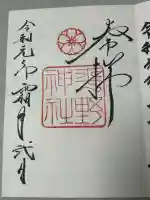 奉拝
野
神社
令和元年霜月弐日